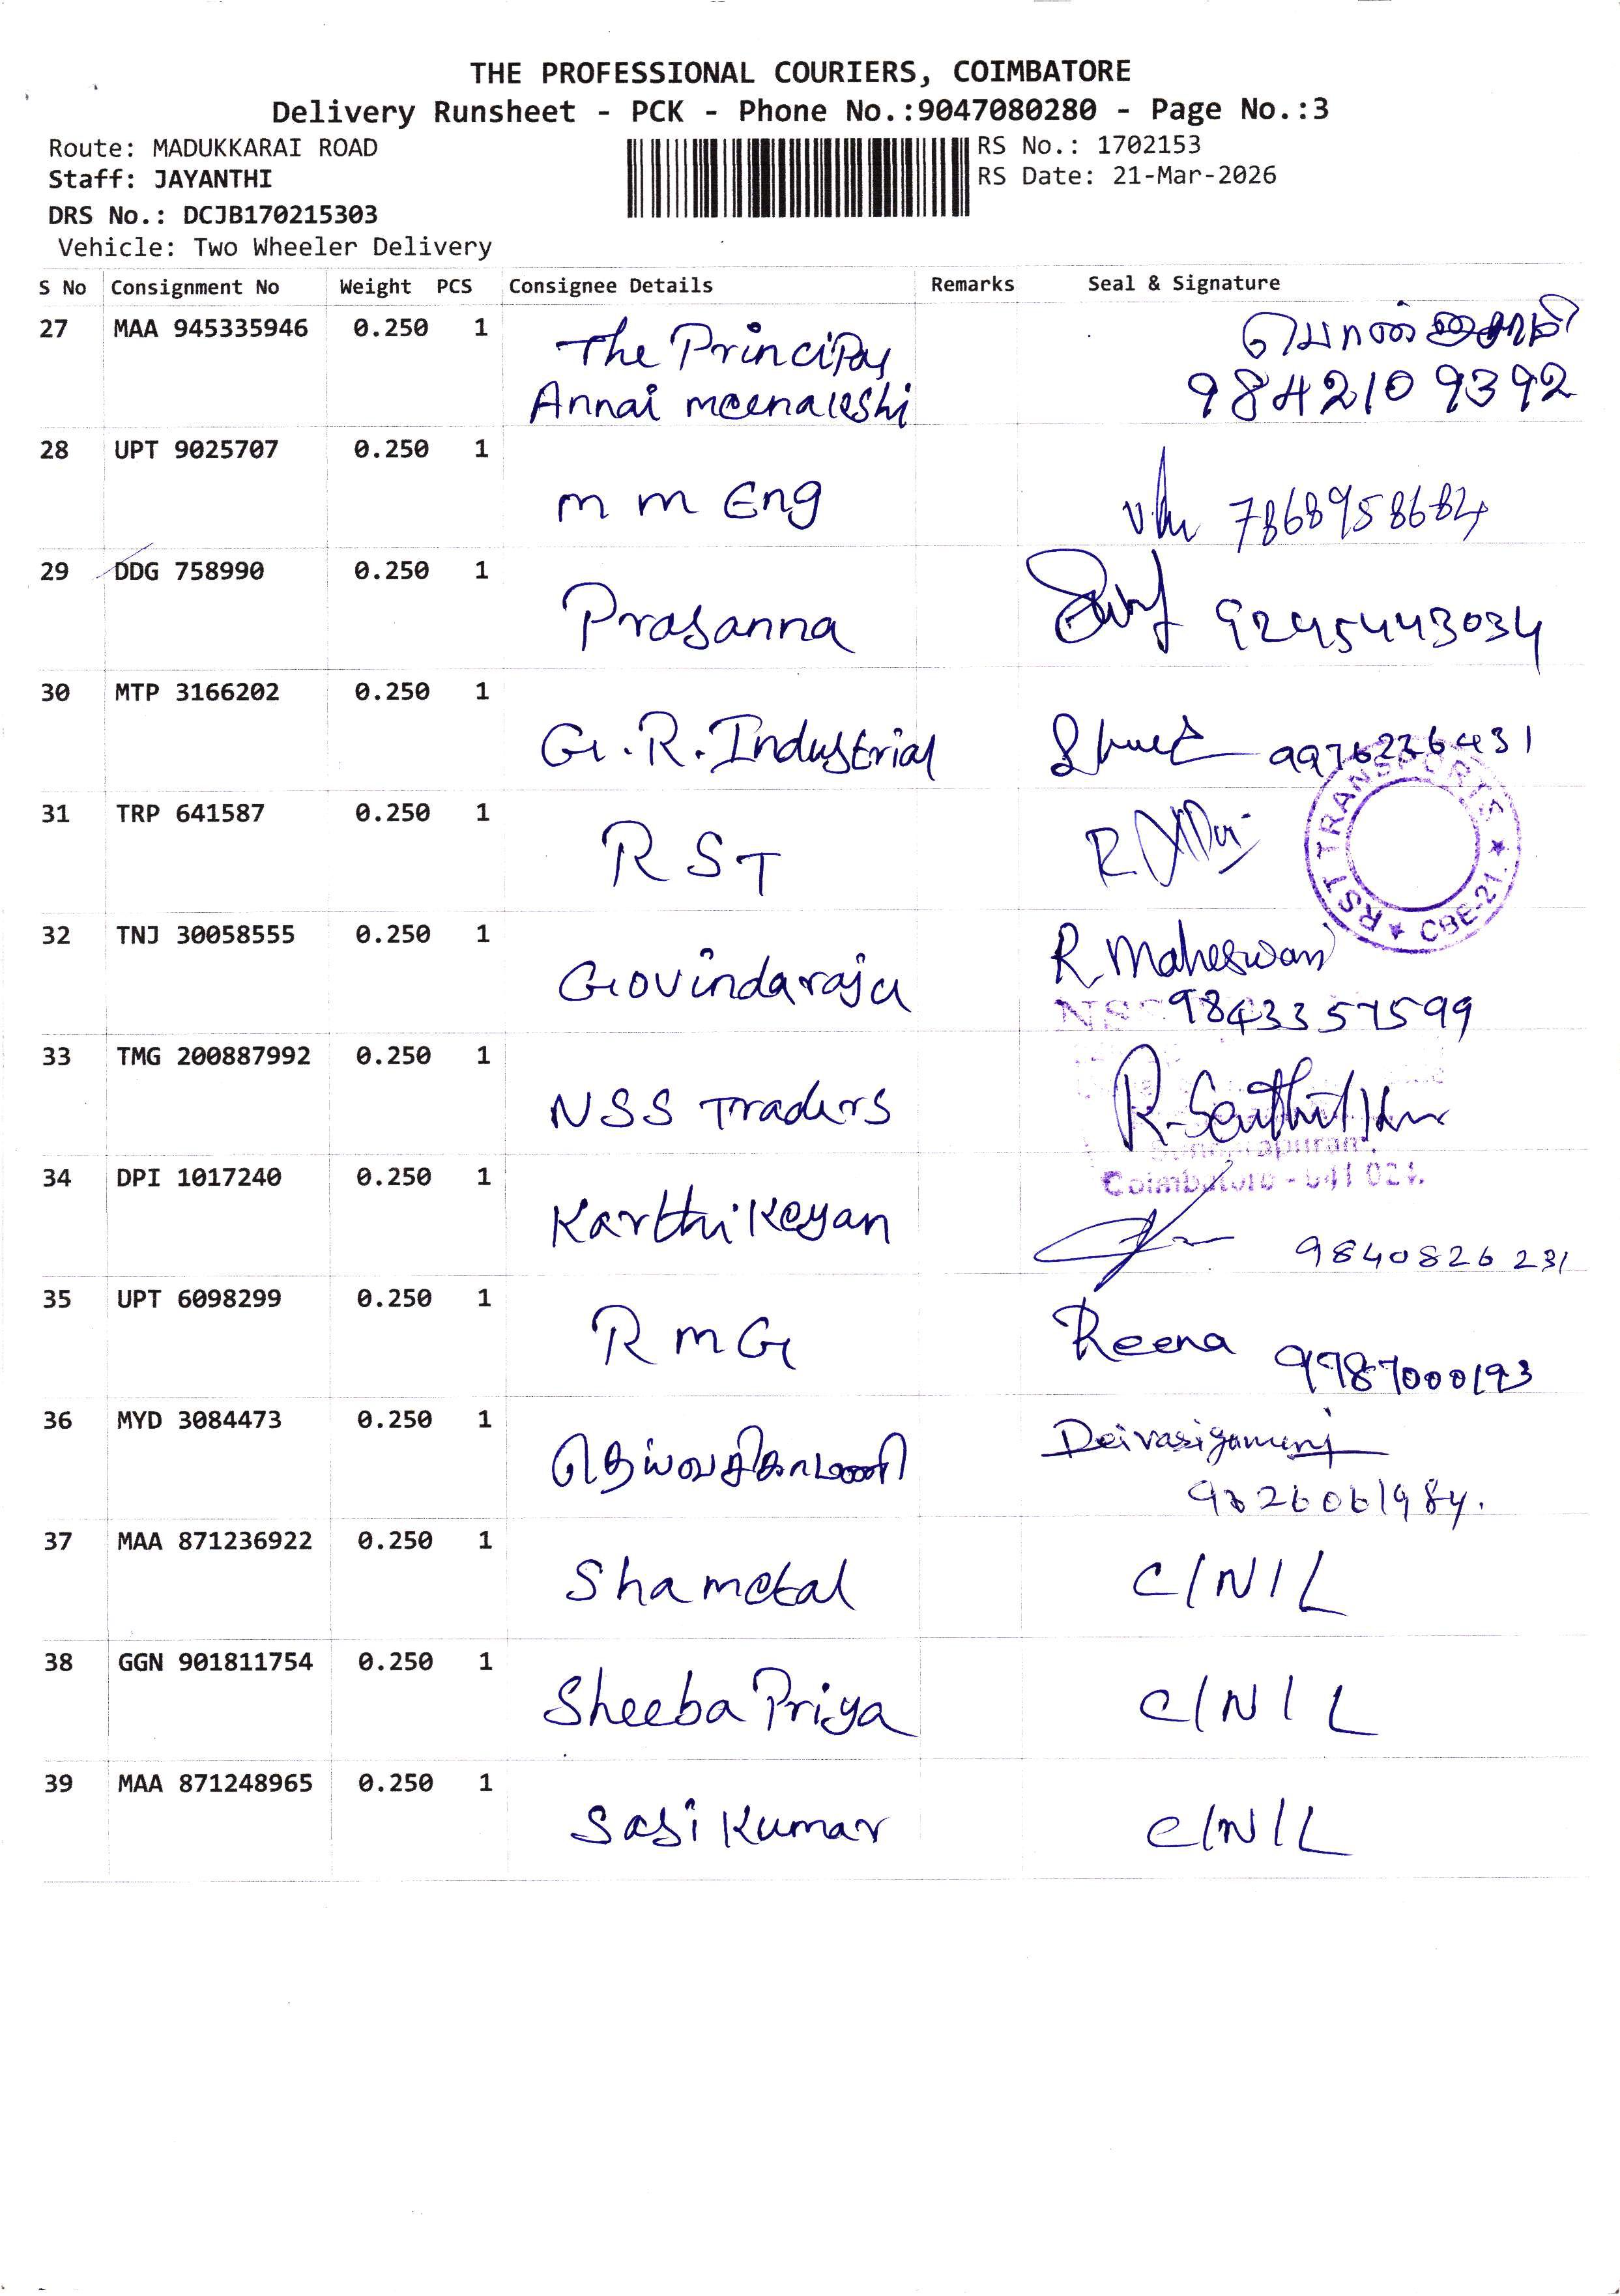 THE PROFESSIONAL COURIERS, COIMBATORE
Delivery Runsheet - PCK - Phone No.:9047080280 - Page No.:3
Route: MADUKKARAI ROAD
RS No.: 1702153
Staff: JAYANTHI
RS Date: 21-Mar-2026
DRS No.: DCJB170215303
Vehicle: Two Wheeler Delivery
S No Consignment No Weight PCS Consignee Details Remarks Seal & Signature
27 MAA 945335946 0.250 1 The Principal
Annai meenakshi 9842109392
28 UPT 9025707 0.250 1 m m Eng 7868958684
29 DDG 758990 0.250 1 Prasanna 9295443034
30 MTP 3166202 0.250 1 G.R.Industrial 9976236431
31 TRP 641587 0.250 1 RST
RST TRANSPORTS ★ CBE-21. ★
32 TNJ 30058555 0.250 1 Govindaraju R. Maheswari
9843357599
33 TMG 200887992 0.250 1 NSS Traders R. Senthil
Coimbatore - 641 021.
34 DPI 1017240 0.250 1 Karthikeyan 9840826231
35 UPT 6098299 0.250 1 RMG Reena 9987000193
36 MYD 3084473 0.250 1 தெய்வசிகாமணி Deivasigamani
37 MAA 871236922 0.250 1 Shametal C/N/L
38 GGN 901811754 0.250 1 Sheeba Priya C/N/L
39 MAA 871248965 0.250 1 Sasi Kumar C/N/L